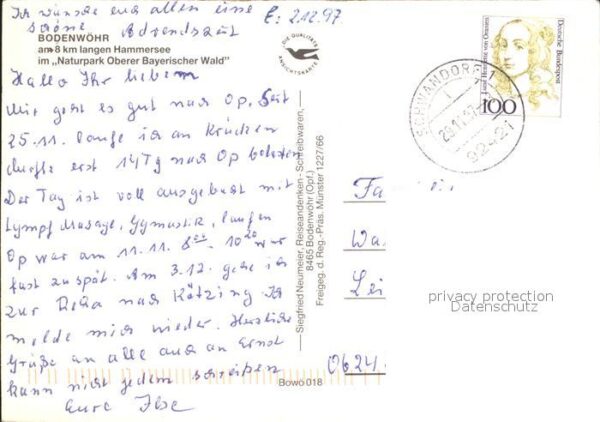 Ich wünsche euch allen eine
schöne Adventszeit
E: 2.12.97
BODENWÖHR
am 8 km langen Hammersee
im „Naturpark Oberer Bayerischer Wald"
Hallo Ihr lieben
Mir geht es gut nach Op. Seit
25.11. laufe ich an Krücken
durfte erst 14 Tg nach Op belasten
Der Tag ist voll ausgebucht mit
Lympf Massage, Gymastik, laufen
Op war am 11.11. 8 00 - 10 20 war
fast zu spät. Am 3.12. gehe ich
zur Reha nach Kötzting. Ich
melde mich wieder. Herzliche
Grüße an alle auch an Ernst
kann nicht jedem schreiben
Eure Ilse
DIE QUALITÄTS
ANSICHTSKARTE
Siegfried Neumeier, Reiseandenken - Schreibwaren,
8465 Bodenwöhr (Opf.)
Freigeg. d. Reg.-Präs. Münster 1227/66
Bowo 018
Deutsche Bundespost
Luise Henriette von Oranien
100
SCHWANDORF 1
29.11.97
92421
Fa
Wa
Lei
0624
privacy protection
Datenschutz